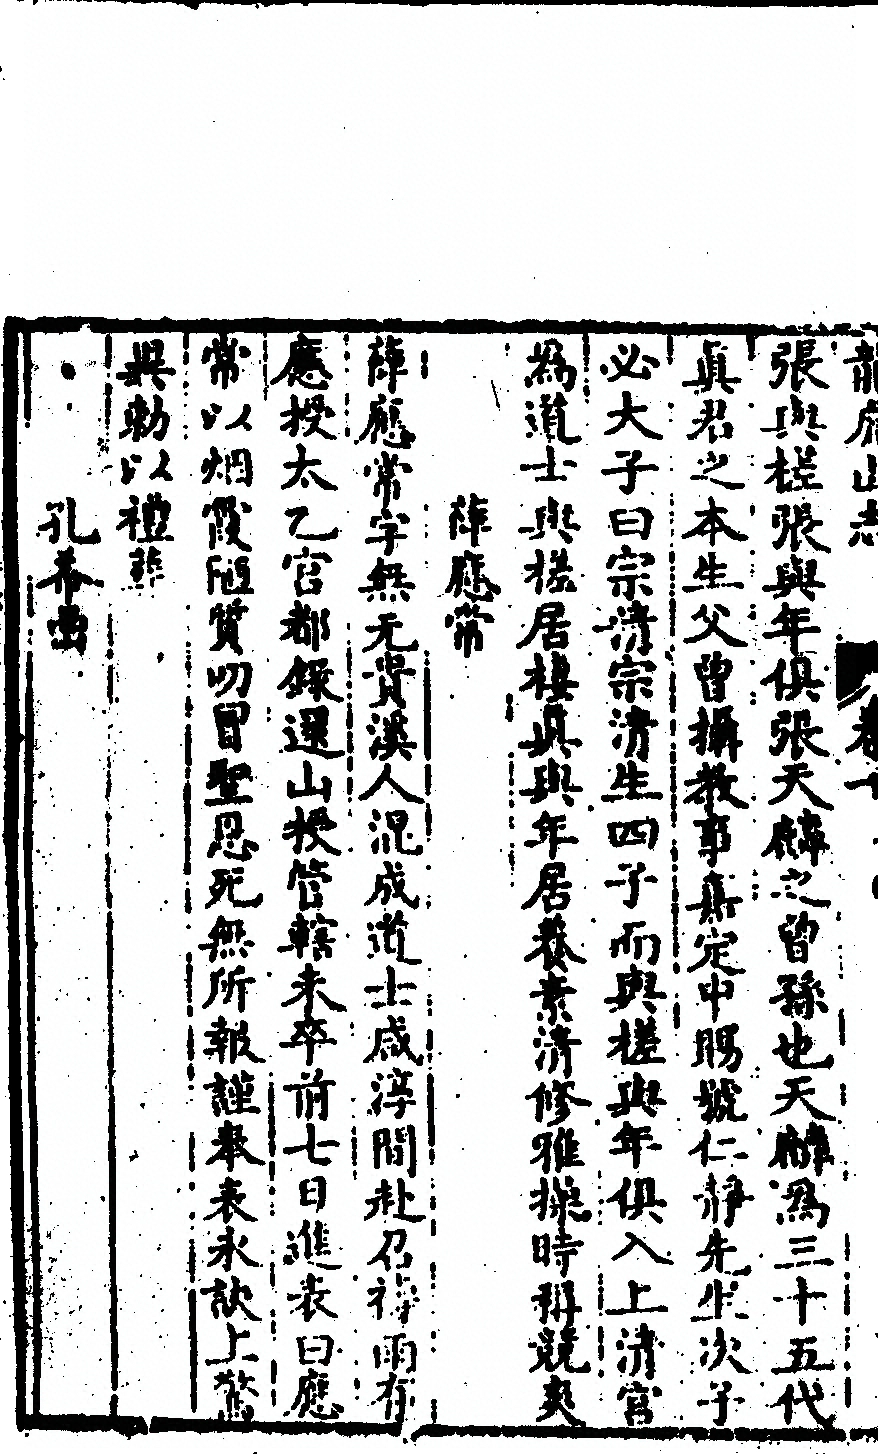 龍虎山志 卷十
張與槎張與年俱張天麟之曾孫也天麟為三十五代
真君之本生父曾攝教事嘉定中賜號仁靜先生次子
必大子曰宗清宗清生四子而與槎與年俱入上清宮
為道士與槎居棲真與年居養素清修雅操時稱競爽
薛應常
薛應常字無无貴溪人混成道士咸淳間赴召禱雨有
應授太乙宮都錄還山授管轄未卒前七日進表曰應
常以烟霞陋質叨冒聖恩死無所報謹奉表永訣上驚
異勅以禮葬
孔希